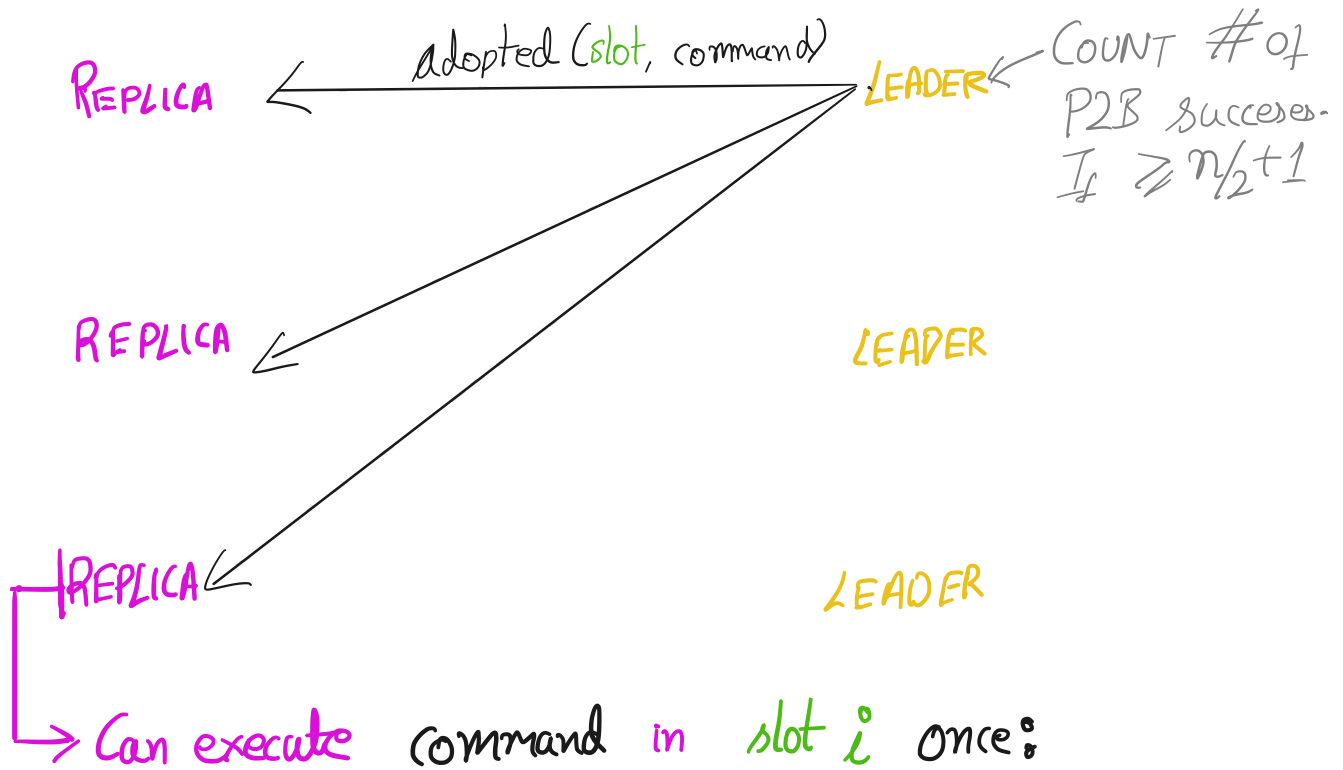 adopted (slot, command)
REPLICA
LEADER
COUNT # of
P2B succeses.
If ≥ n/2+1
REPLICA
LEADER
REPLICA
LEADER
Can execute command in slot i once: